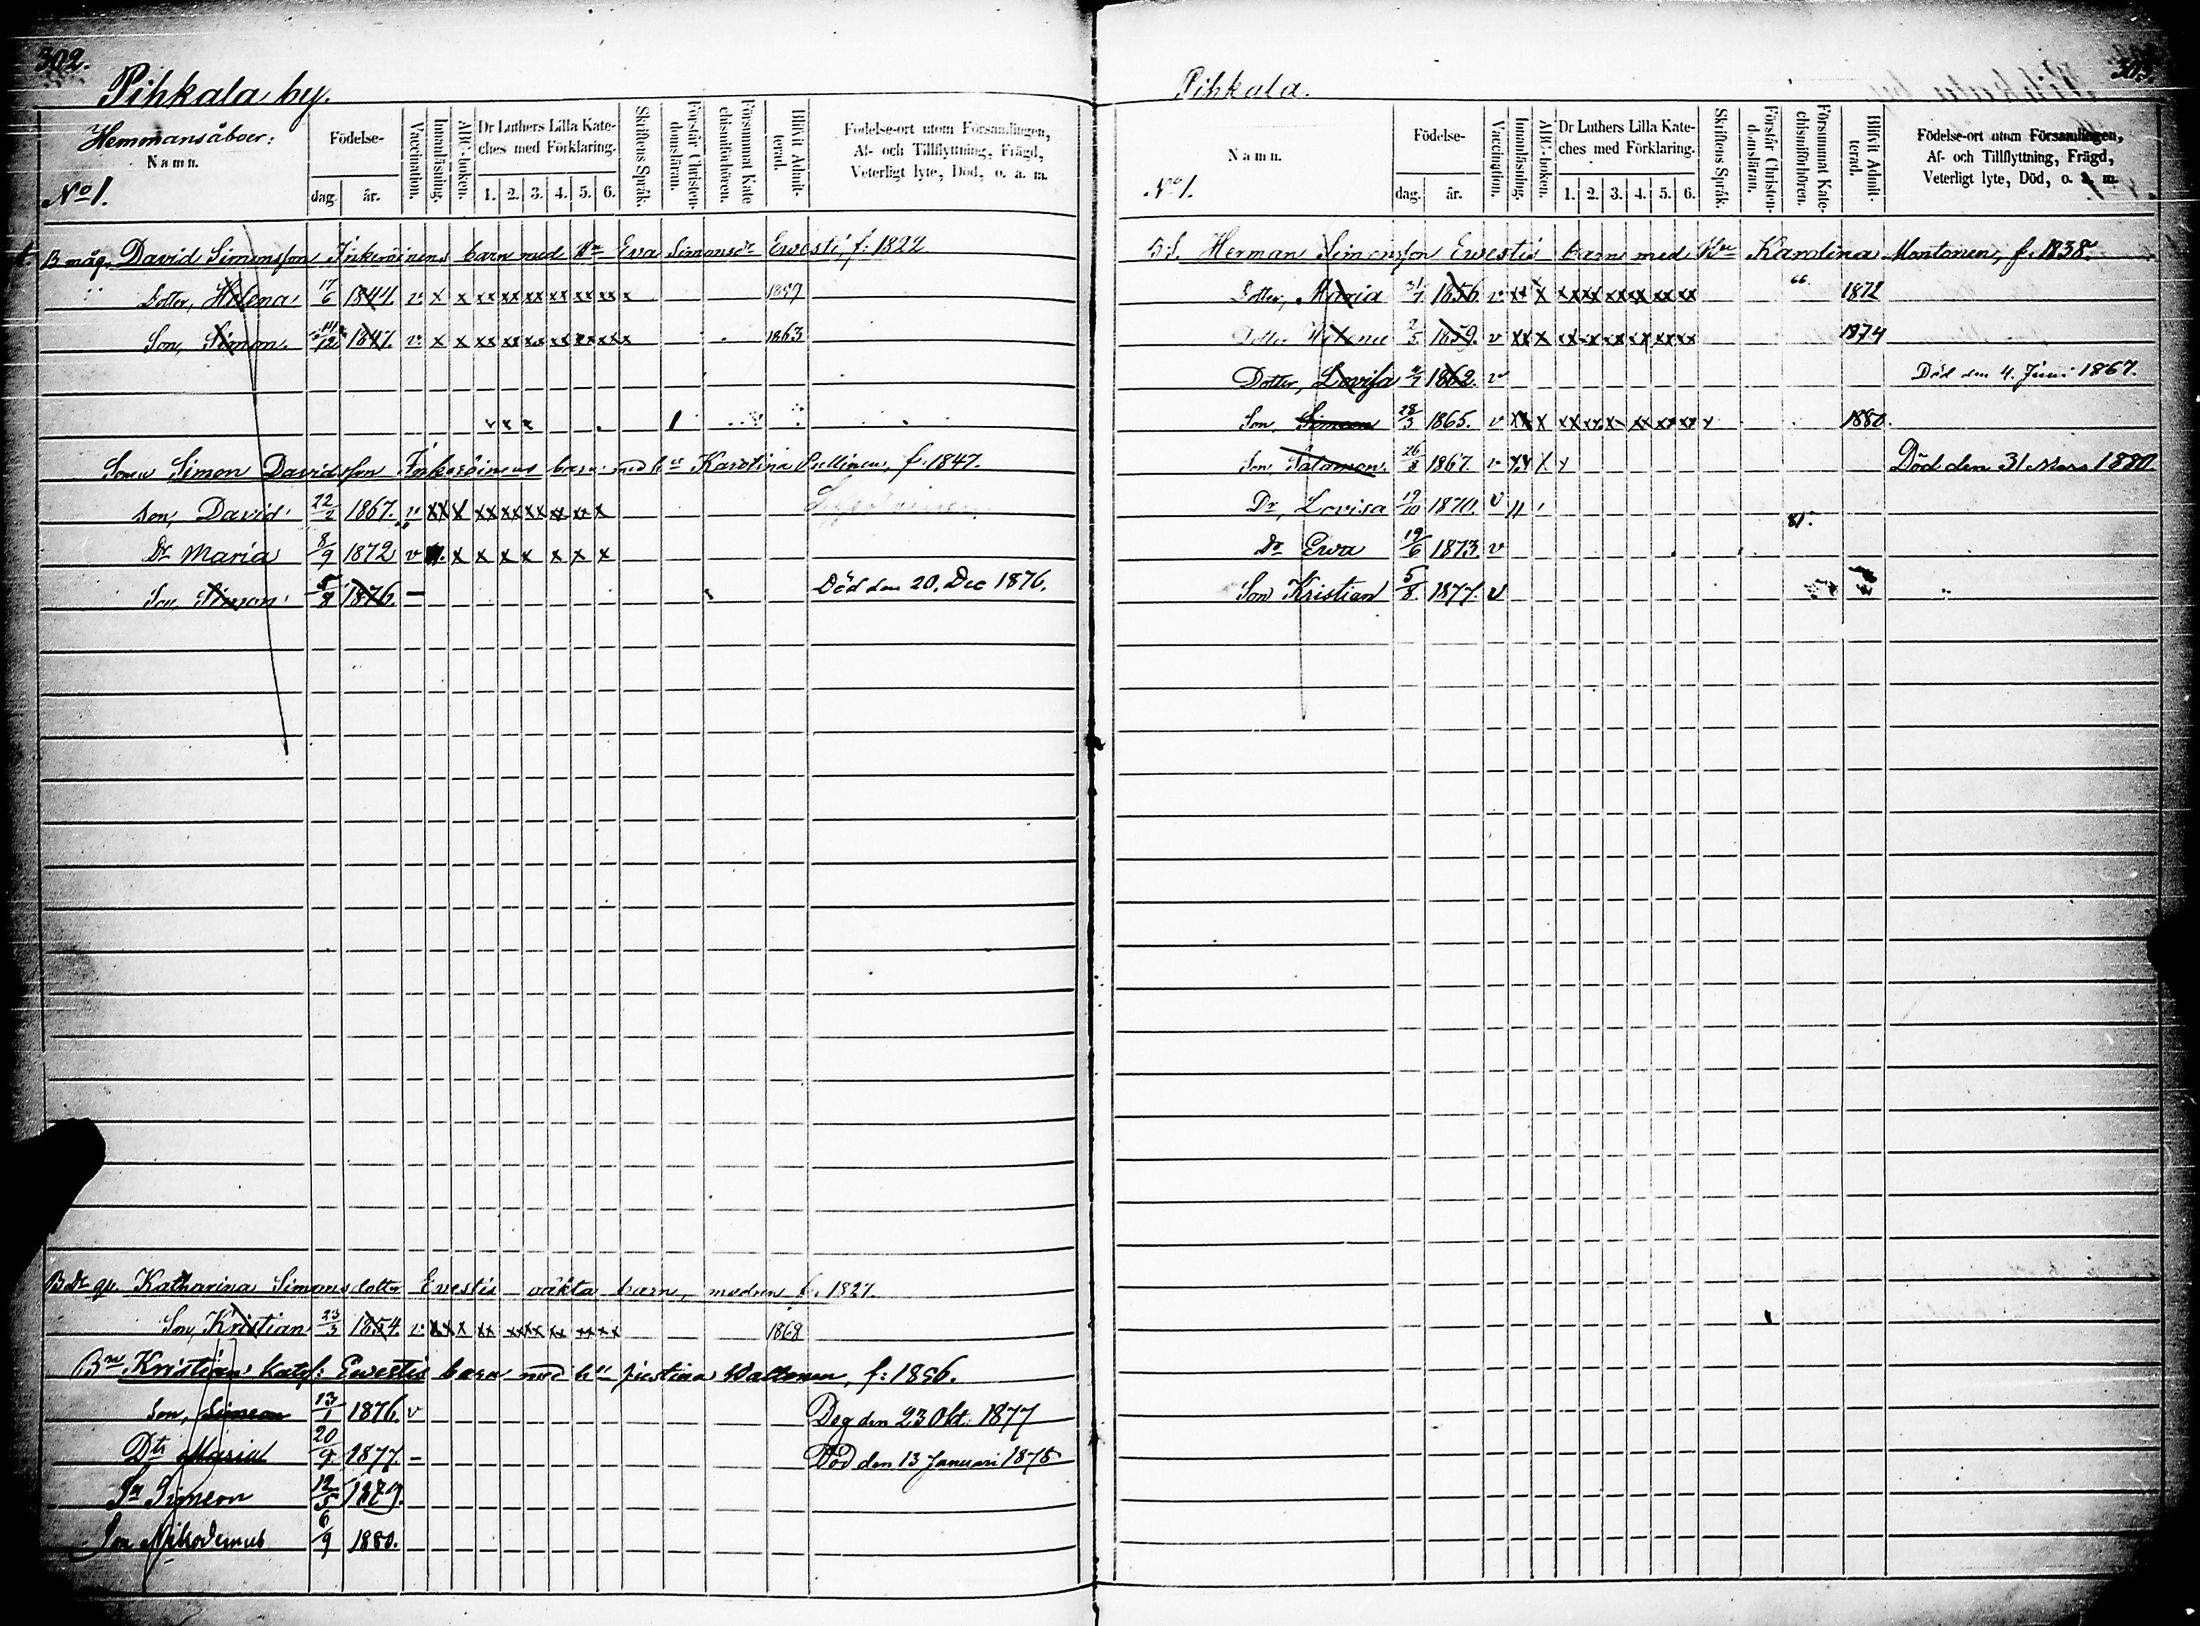 302.
Pihkala by.
Hemmansåboer:
Namn.
No 1.
Födelse-
dag. år.
Vaccination.
Innanläsning.
ABC-boken.
Dr Luthers Lilla Kate-
ches med Förklaring.
1. 2. 3. 4. 5. 6.
Skriftens Språk.
Förstår Christen-
domsläran.
Försummat Kate
chismiförhören.
Blifvit Admit-
terad.
Födelse-ort utom Församlingen,
Af- och Tillflyttning, Frägd,
Veterligt lyte, Död, o. a. m.
B måg. David Simonsson Inkeröinens barn med Hu Eva Simonsdr Ewesti, f. 1822
Dotter, Helena 17/6 1844 v x x xx xx xx xx xx xx x 1859
Son, Simon. 14/12 1847. v x x xx xx xx xx xx xx x 1863
Sonen Simon Davidsson Inkeröinens barn med hu Karolina Pullinen, f. 1847.
Son, David 22/2 1867. v xx x xx xx xx xx xx x
Dr Maria 8/9 1872 v x x x x x x x
Son, Simon 5/8 1876. - Död den 20. Dec 1876.
B Dr qp. Katharina Simonsdotter Ewestis oäkta barn, modren f. 1827.
Son, Kristian 23/3 1854. v xx x xx xx xx xx xx xx 1868
Bn Kristian Katf: Ewestis barn med hu Justina Wattonen, f: 1856.
Son, Simeon 13/1 1876. v Dog den 23 Okt. 1877
Dtr Maria 20/9 1877. - Död den 13 Januari 1878
Sn Simeon 12/5 1879.
Son Nikodemus 6/9 1880.
303.
Pihkala.
Namn.
No 1.
Födelse-
dag. år.
Vaccination.
Innanläsning.
ABC-boken.
Dr Luthers Lilla Kate-
ches med Förklaring.
1. 2. 3. 4. 5. 6.
Skriftens Språk.
Förstår Christen-
domsläran.
Försummat Kate-
chismiförhören.
Blifvit Admit-
terad.
Födelse-ort utom Församlingen,
Af- och Tillflyttning, Frägd,
Veterligt lyte, Död, o. a. m.
B S. Herman Simonsson Ewestis barn med Hu Karolina Montonen, f. 1838.
Dotter, Maria 1856 v xx x xx xx xx xx xx 66 1872
Dotter Helena 2/5 1859. v xx x xx xx xx xx xx xx 1874
Dotter, Lovisa 1862. v Död den 4. Juni 1867.
Son, Simeon 28/3 1865. v xx x xx xx xx xx xx xx x 1880.
Son Salamon. 26/8 1867. v xx x x Död den 31 Mars 1880
Dr, Lovisa 19/10 1870. v
81.
Dr Ewa 19/6 1873. v
Son Kristian 5/8. 1877. v